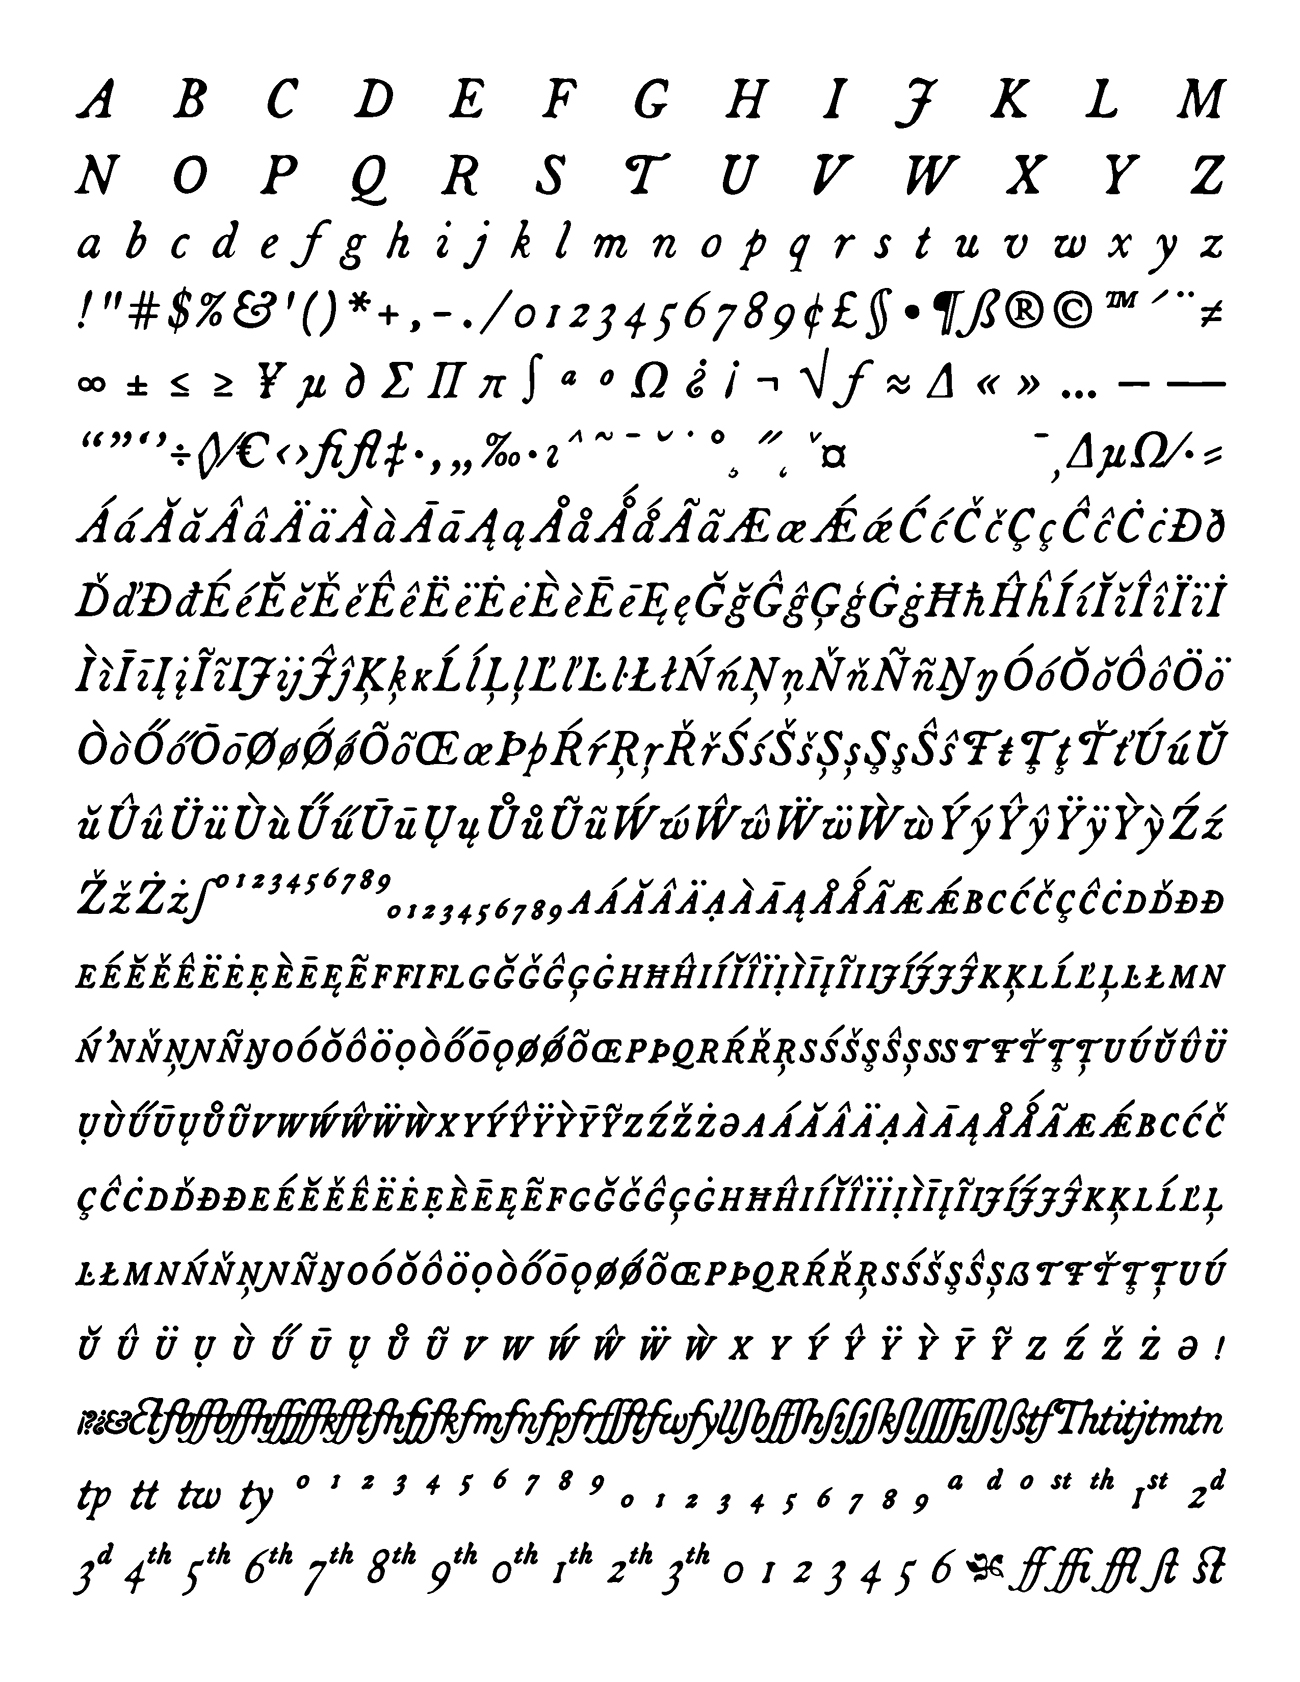 A B C D E F G H I J K L M
N O P Q R S T U V W X Y Z
a b c d e f g h i j k l m n o p q r s t u v w x y z
!"#$%&'()*+,-./0123456789¢£§•¶ß®©™´¨≠
∞ ± ≤ ≥ ¥ µ ∂ Σ Π π ∫ ª º Ω ¿ ¡ ¬ √ ƒ ≈ Δ « » … – —
“”‘’÷◊⁄€‹›ﬁﬂ‡·‚„‰·ıˆ˜¯˘˙˚¸˝˛ˇ¤ ¯ ¸ΔµΩ⁄·=
ÁáĂăÂâÄäÀàĀāĄąÅåǺǻÃãÆæǼǽĆćČčÇçĈĉĊċÐð
ĎďĐđÉéĔĕĚěÊêËëĖėÈèĒēĘęĞğĜĝĢģĠġĦħĤĥÍíĬĭÎîÏïİ
ÌìĪīĮįĨĩĲĳĴĵĶķĸĹĺĻļĽľĿŀŁłŃńŅņŇňÑñŊŋÓóŎŏÔôÖö
ÒòŐőŌōØøǾǿÕõŒœÞþŔŕŖŗŘřŚśŠšȘșŞşŜŝŦŧŢţŤťÚúŬ
ŭÛûÜüÙùŰűŪūŲųŮůŨũẂẃŴŵẄẅẀẁÝýŶŷŸÿỲỳŹź
ŽžŻżſ⁰¹²³⁴⁵⁶⁷⁸⁹₀₁₂₃₄₅₆₇₈₉AÁĂÂÄẠÀĀĄÅǺÃÆǼBCĆČÇĈĊDĎĐÐ
EÉĔĚÊËĖẸÈĒĘẼFFIFLGĞǦĜĢĠHĦĤIÍĬÎÏỊÌĪĮĨIĲÍJ́JĴKĶLĹĽĻĿŁMN
ŃŉŇŅɲÑŊOÓŎÔÖỌÒŐŌǪØǾÕŒPÞQRŔŘŖSŚŠŞŜȘSSTŦŤŢȚUÚŬÛÜ
ỤÙŰŪŲŮŨVWẂŴẄẀXYÝŶŸỲȲỸZŹŽŻƏAÁĂÂÄẠÀĀĄÅǺÃÆǼBCĆČ
ÇĈĊDĎĐÐEÉĔĚÊËĖẸÈĒĘẼFGĞǦĜĢĠHĦĤIÍĬÎÏİỊÌĪĮĨĲÍJ́JĴKĶLĹĽĻ
ĿŁMNŃŇŅɲÑŊOÓŎÔÖỌÒŐŌǪØǾÕŒPÞQRŔŘŖSŚŠŞŜȘßTŦŤŢȚUÚ
Ŭ Û Ü Ụ Ù Ű Ū Ų Ů Ũ V W Ẃ Ŵ Ẅ Ẁ X Y Ý Ŷ Ÿ Ỳ Ȳ Ỹ Z Ź Ž Ż Ə !
tp tt tw ty 0 1 2 3 4 5 6 7 8 9 0 1 2 3 4 5 6 7 8 9 a d o st th 1st 2d
3d 4th 5th 6th 7th 8th 9th 0th 1th 2th 3th 0 1 2 3 4 5 6 ❧ ff ffi ffl ſt st